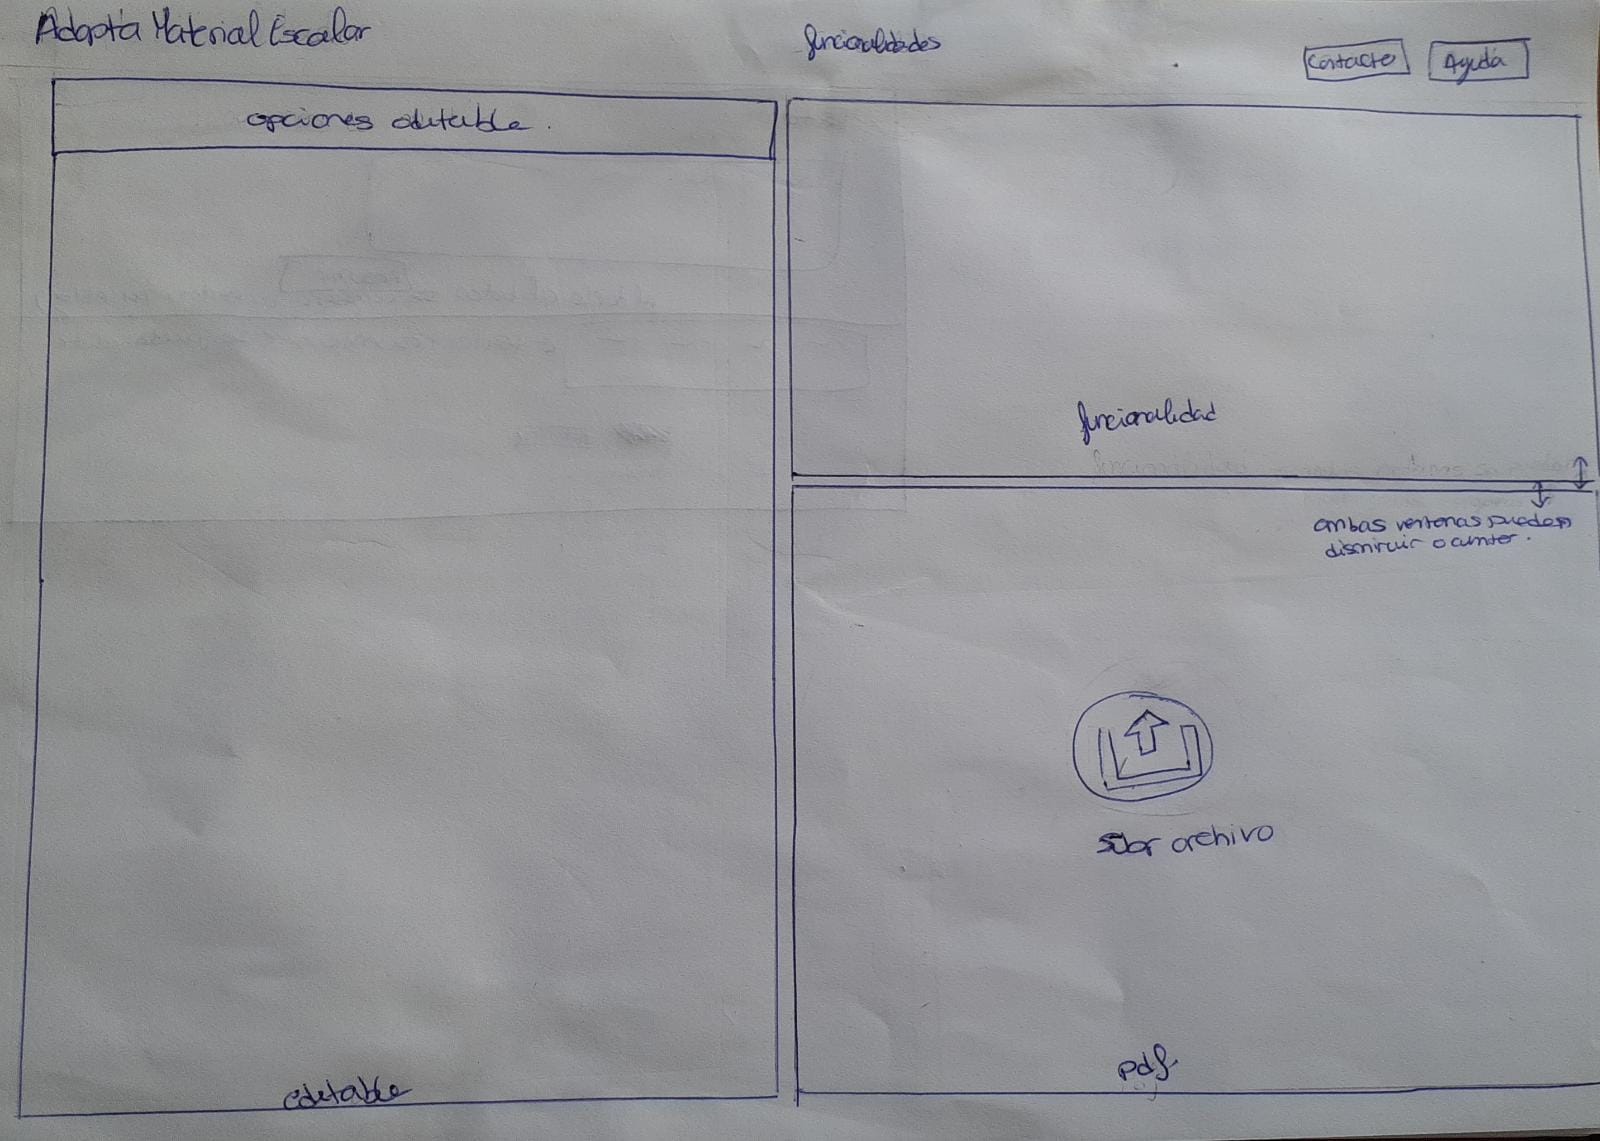 Adapta Material Escolar
funcionalidades
Contacto
Ayuda
opciones editable.
funcionalidad
ambas ventanas pueden
disminuir o aumter.
Subir archivo
pdf
editable